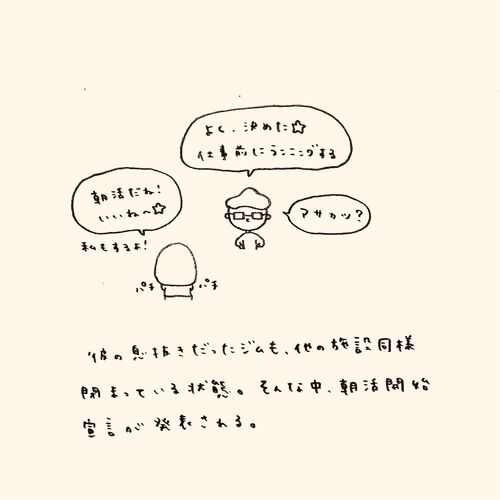 よし、決めた☆
仕事前にランニングする
朝活だね!
いいね〜☆
アサカツ?
私もするよ!
パチ
パチ
彼の息抜きだったジムも、他の施設同様
閉まっている状態。そんな中、朝活開始
宣言が発表される。